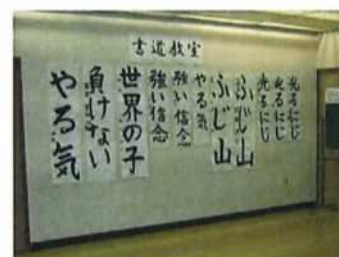 書道教室
光るにじ
光るにじ
光るにじ
ふじ山
ふじ山
やる気
強い信念
強い信念
世界の子
負けない
やる気